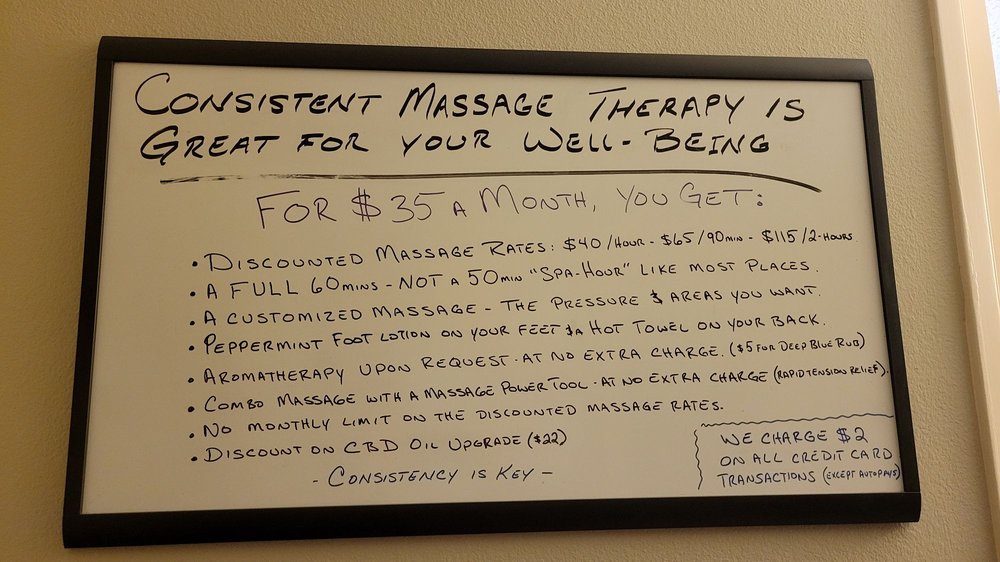 CONSISTENT MASSAGE THERAPY IS
GREAT FOR YOUR WELL-BEING
FOR $35 A MONTH, YOU GET:
• DISCOUNTED MASSAGE RATES: $40/HOUR - $65/90MIN - $115/2-HOURS
• A FULL 60MINS - NOT A 50MIN "SPA-HOUR" LIKE MOST PLACES.
• A CUSTOMIZED MASSAGE - THE PRESSURE & AREAS YOU WANT.
• PEPPERMINT FOOT LOTION ON YOUR FEET & A HOT TOWEL ON YOUR BACK.
• AROMATHERAPY UPON REQUEST - AT NO EXTRA CHARGE. ($5 FOR DEEP BLUE RUB)
• COMBO MASSAGE WITH A MASSAGE POWER TOOL - AT NO EXTRA CHARGE (RAPID TENSION RELIEF).
• NO MONTHLY LIMIT ON THE DISCOUNTED MASSAGE RATES.
• DISCOUNT ON CBD OIL UPGRADE ($22)
- CONSISTENCY IS KEY -
WE CHARGE $2
ON ALL CREDIT CARD
TRANSACTIONS (EXCEPT AUTOPAYS)